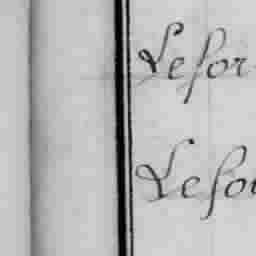 Lefor
Lefor